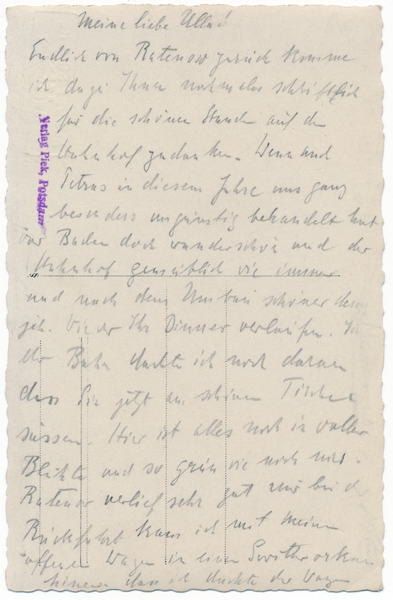 Meine liebe Ulla!
Endlich von Ratenow zurück komme
ich dazu Ihnen nochmals schriftlich
für die schönen Stunden auf dem
Uhnhof zu danken. Wenn auch
Petrus in diesem Jahre uns ganz
besonders ungünstig behandelt hat
war Baden doch wunderschön und der
Uhnhof gemütlich wie immer
und nach dem Umbau schöner denn
je. Wie der Ihr Dinner verlaufen. In
der Bahn dachte ich noch daran
dass Sie jetzt am schönen Tische
sässen. Hier ist alles noch in voller
Blüte und so grün wie noch nie.
Ratenow verlief sehr gut nur bei der
Rückfahrt kam ich mit meinem
offenen Wagen in einen Gewitterorkan
hinein dass ich dachte der Wagen
Verlag Piek, Potsdam